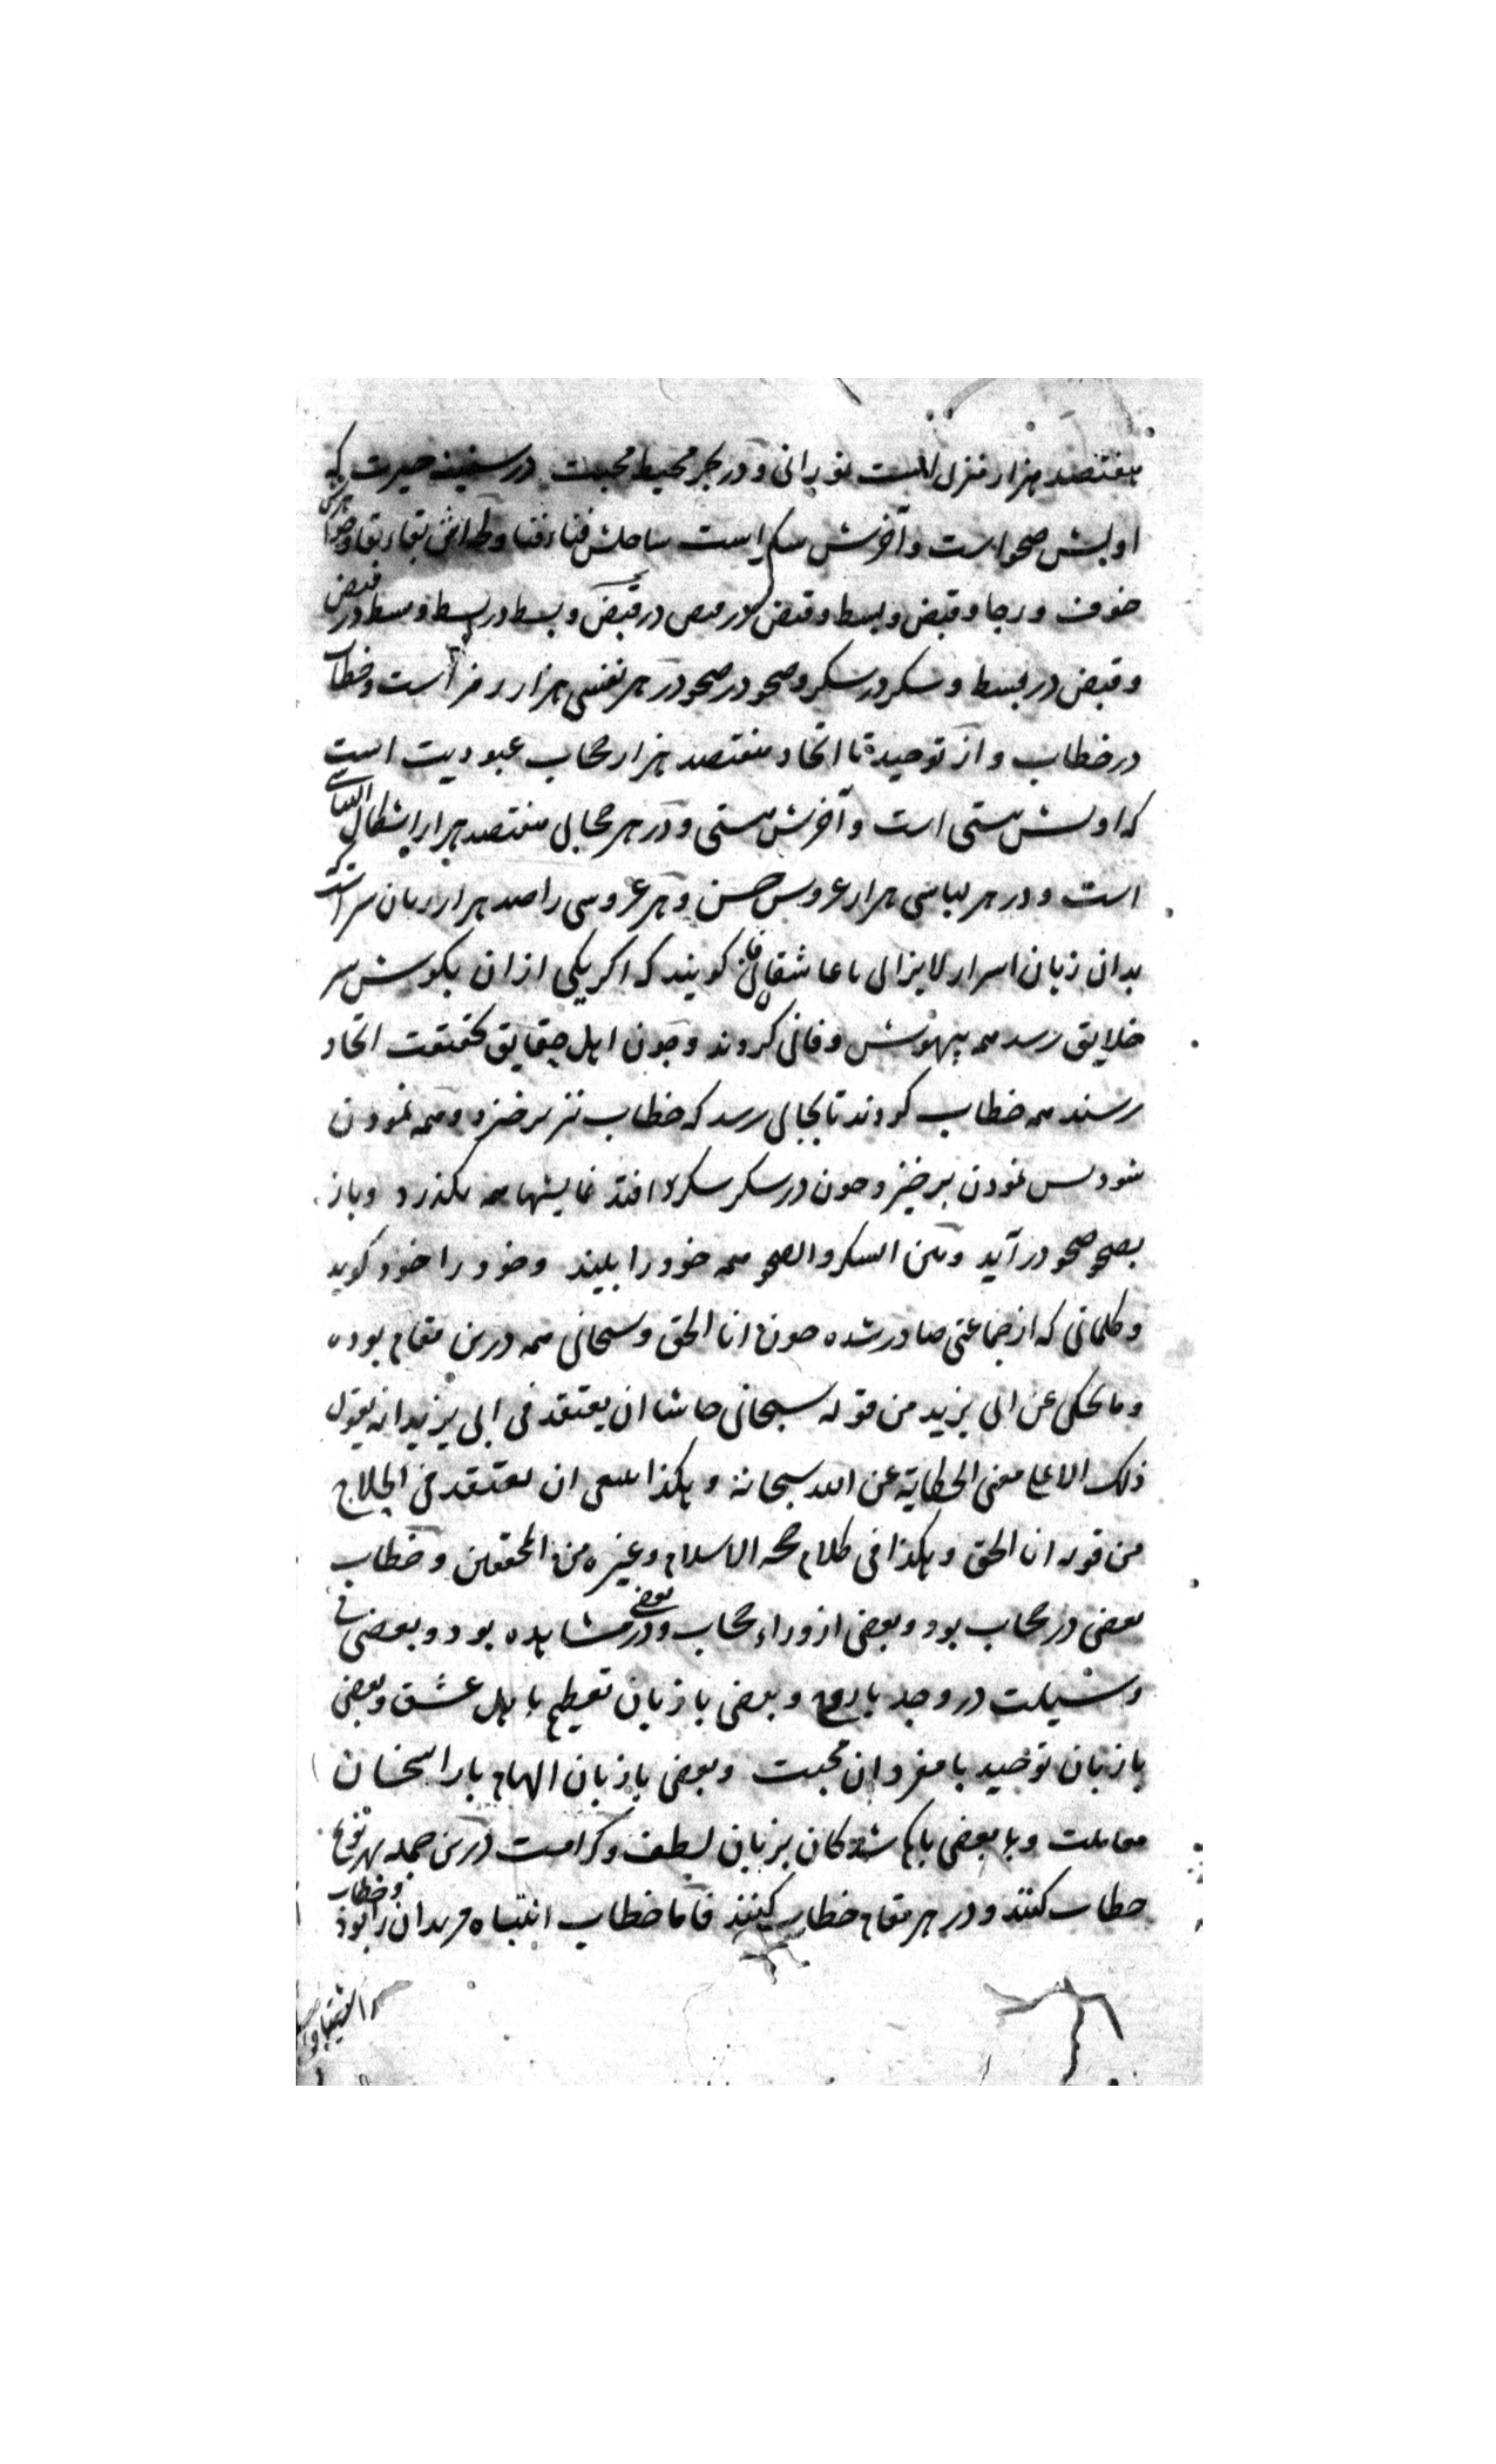 هفتصد هزار منزل است نورانی و در بحر محیط محبت در سفینه حیرت که
اولش صحو است و آخرش سکر است ساحلش فناء فنا و بقاء بقا و هر
خوف و رجا و قبض و بسط و قبض در قبض و بسط در بسط و بسط در قبض
و قبض در بسط و سکر در سکر و صحو در صحو در هر نفسی هزار رمز است و خطاب
در خطاب و از توحید تا اتحاد هفتصد هزار حجاب عبودیت است
که اولش هستی است و آخرش مستی و در هر حجابی هفتصد هزار اشکال
است و در هر لباسی هزار عروس حسن و هر عروسی را صد هزار زبان
بدان زبان اسرار لایزالی با عاشقان کویند که اکر یکی از ان بکوش سر
خلایق رسد همه بیهوش و فانی کردند و چون اهل حقایق بحقیقت اتحاد
رسند همه خطاب کردند تا بجایی رسد که خطاب نیز برخیزد و همه نمودن
شود پس نمودن برخیزد چون در سکر سکر افتد نمایشها همه بکذرد و باز
بصحو صحو درآید و بین السکر والصحو همه خود را بیند و خود را خود کوید
و کلماتی که از جماعتی صادر شده چون انا الحق و سبحانی همه درین مقام بوده
وما یحکی عن ابی یزید من قوله سبحانی حاشا ان یعتقد فی ابی یزید انه یقول
ذلک الا علی معنی الحکایة عن الله سبحانه وهکذا ینبغی ان یعتقد فی الحلاج
من قوله انا الحق وهکذا فی کلام حجة الاسلام وغیره من المحققین و خطاب
بعضی در حجاب بود و بعضی از وراء حجاب و بعضی در مشاهده بود و بعضی بی
وسیلت در وجد با روح و بعضی با زبان تعظیم با اهل عشق و بعضی
با زبان توحید با مفردان محبت و بعضی با زبان الهام با راسخان
معاملت و با بعضی بزبان لطف و کرامت درین جمله بهر نوع
خطاب کنند و در هر مقام خطاب کنند فاما خطاب انتباه مریدان را بود و خطاب